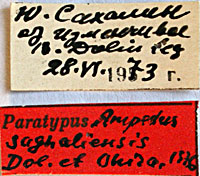 Ю. Сахалин
оз Изменчивое
В. Dolin leg
28.VI.1973 г.
Paratypus Ampedus
saghaliensis
Dol. et Ohira, 1976